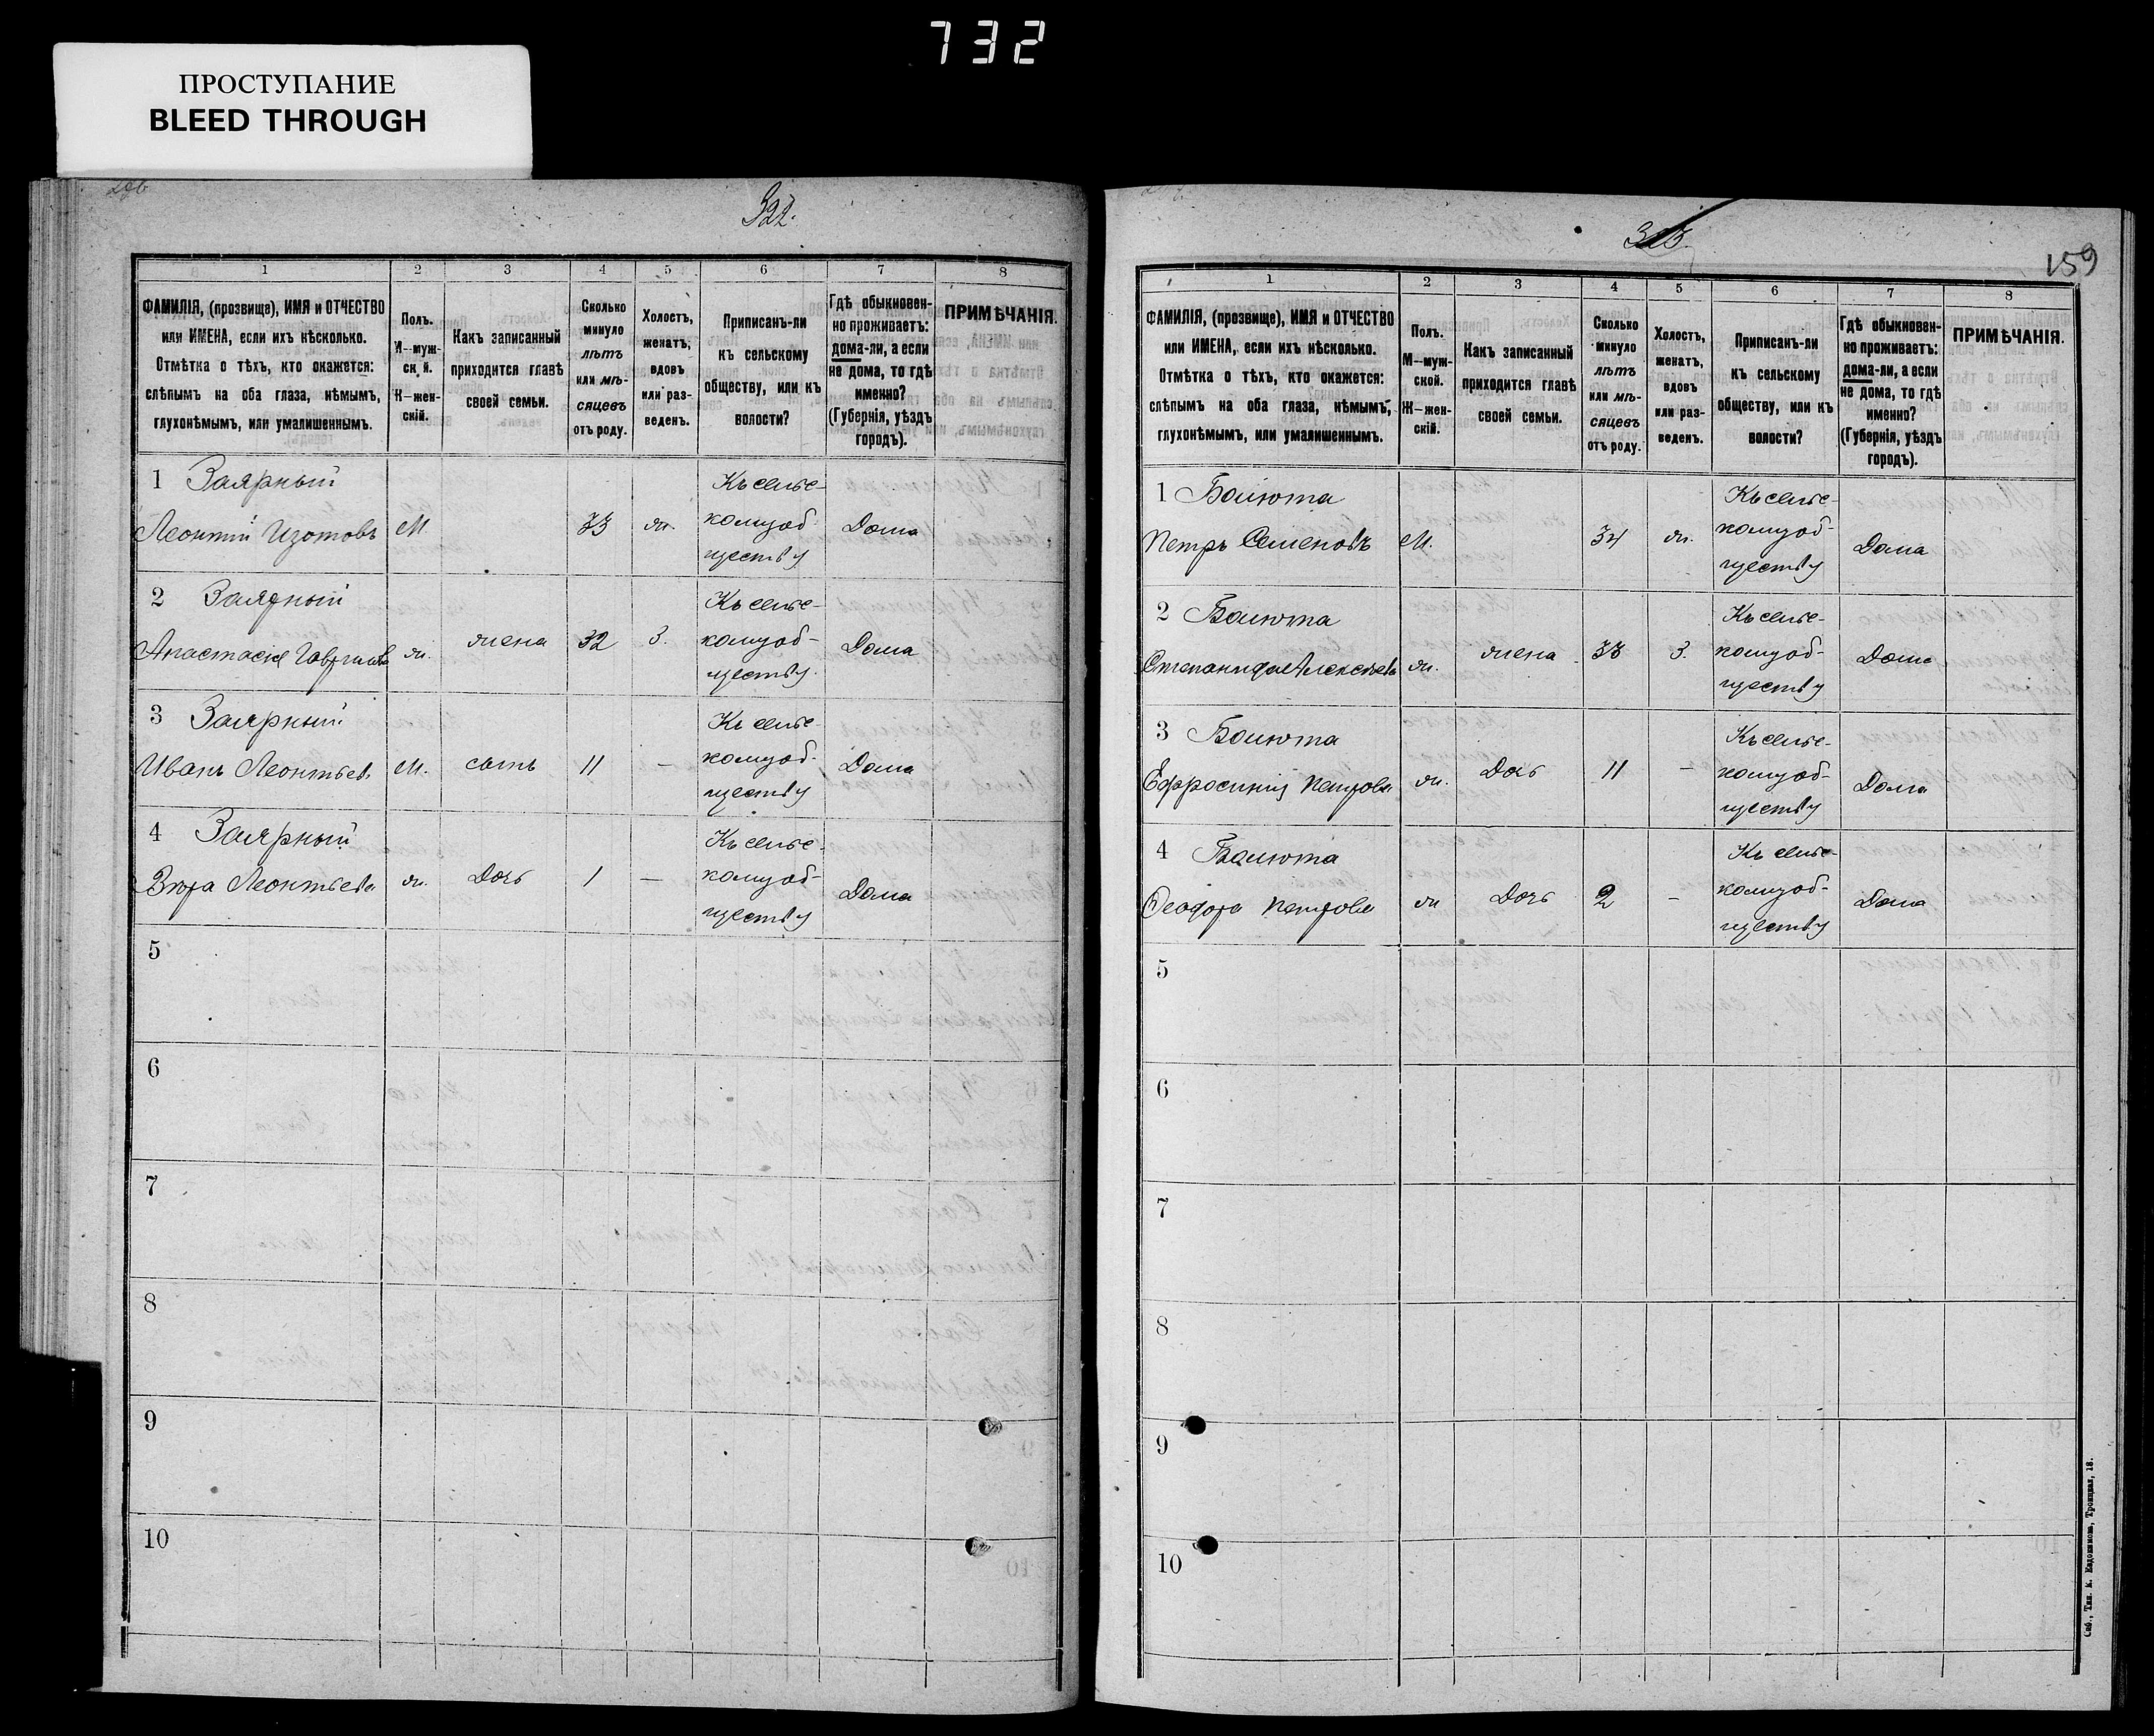 732
ПРОСТУПАНИЕ
BLEED THROUGH
322.
1 2 3 4 5 6 7 8
ФАМИЛІЯ, (прозвище), ИМЯ и ОТЧЕСТВО
или ИМЕНА, если ихъ нѣсколько.
Отмѣтка о тѣхъ, кто окажется:
слѣпымъ на оба глаза, нѣмымъ,
глухонѣмымъ, или умалишеннымъ.
Полъ.
М—муж-
ской.
Ж—жен-
скій.
Какъ записанный
приходится главѣ
своей семьи.
Сколько
минуло
лѣтъ
или мѣ-
сяцевъ
отъ роду.
Холостъ,
женатъ,
вдовъ
или раз-
веденъ.
Приписанъ-ли
къ сельскому
обществу, или къ
волости?
Гдѣ обыкновен-
но проживаетъ:
дома-ли, а если
не дома, то гдѣ
именно?
(Губернія, уѣздъ
городъ).
ПРИМѢЧАНІЯ.
1 Заярный
Леонтій Изотовъ М 33 ж. Къ сельс-
кому об-
ществу Дома
2 Заярный
Анастасія Гаврилова ж. жена 32 З. Къ сельс-
кому об-
ществу Дома
3 Заярный
Иванъ Леонтьев. М. сынъ 11 — Къ сельс-
кому об-
ществу Дома
4 Заярный
Вѣра Леонтьева ж. Дочь 1 — Къ сельс-
кому об-
ществу Дома
5
6
7
8
9
10
159
1 2 3 4 5 6 7 8
ФАМИЛІЯ, (прозвище), ИМЯ и ОТЧЕСТВО
или ИМЕНА, если ихъ нѣсколько.
Отмѣтка о тѣхъ, кто окажется:
слѣпымъ на оба глаза, нѣмымъ,
глухонѣмымъ, или умалишеннымъ.
Полъ.
М—муж-
ской.
Ж—жен-
скій.
Какъ записанный
приходится главѣ
своей семьи.
Сколько
минуло
лѣтъ
или мѣ-
сяцевъ
отъ роду.
Холостъ,
женатъ,
вдовъ
или раз-
веденъ.
Приписанъ-ли
къ сельскому
обществу, или къ
волости?
Гдѣ обыкновен-
но проживаетъ:
дома-ли, а если
не дома, то гдѣ
именно?
(Губернія, уѣздъ
городъ).
ПРИМѢЧАНІЯ.
1
Петръ Семеновъ М. 34 ж. Къ сельс-
кому об-
ществу Дома
2
Степанида Алексѣева ж. жена 33 З. Къ сельс-
кому об-
ществу Дома
3
Ефросинія Петрова ж. Дочь 11 — Къ сельс-
кому об-
ществу Дома
4
Ѳеодора Петрова ж Дочь 2 — Къ сельс-
кому об-
ществу Дома
5
6
7
8
9
10
Спб., Тип. К. Евдокимова, Троицкая, 18.